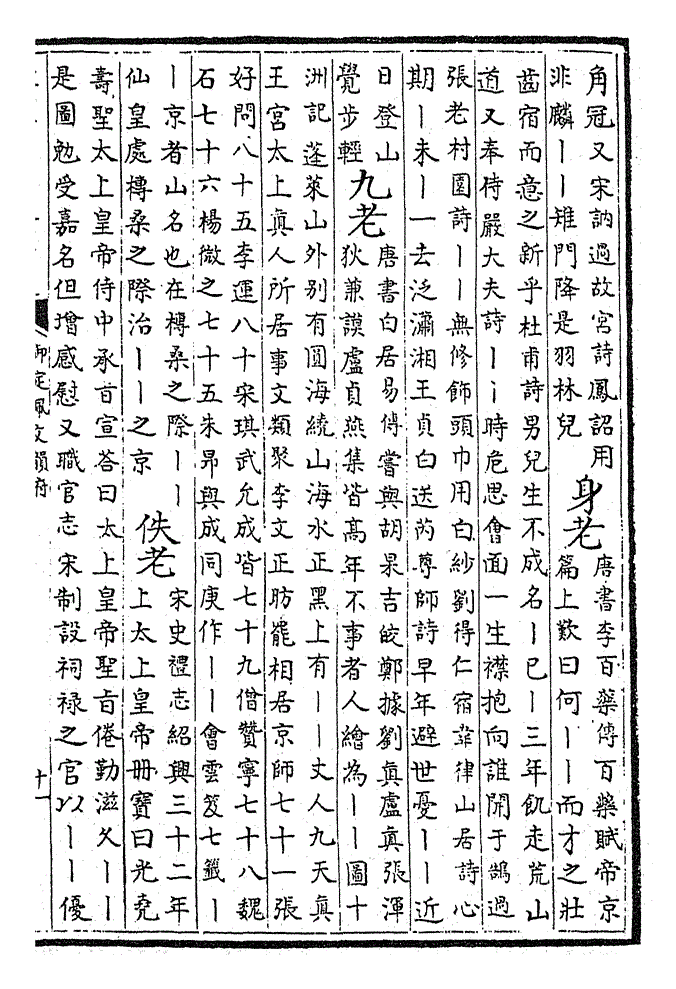 角冠又宋訥過故宮詩鳳詔用
非麟｜｜雉門降是羽林兒
身老
唐書李百藥傳百藥賦帝京
篇上歎曰何｜｜而才之壯
齒宿而意之新乎杜甫詩男兒生不成名｜已｜三年飢走荒山
道又奉待嚴大夫詩｜｜時危思會面一生襟抱向誰開于鵠過
張老村園詩｜｜無修飾頭巾用白紗劉得仁宿韋律山居詩心
期｜未｜一去泛瀟湘王貞白送芮尊師詩早年避世憂｜｜近
日登山
覺步輕
九老
唐書白居易傳嘗與胡杲吉皎鄭據劉真盧真張渾
狄兼謨盧貞燕集皆高年不事者人繪為｜｜圖十
洲記蓬萊山外别有圓海繞山海水正黑上有｜｜丈人九天真
王宮太上真人所居事文類聚李文正昉罷相居京師七十一張
好問八十五李運八十宋琪武允成皆七十九僧贊寧七十八魏
石七十六楊徽之七十五朱昂與成同庚作｜｜會雲笈七籤｜
｜京者山名也在榑桑之際｜｜
仙皇處榑桑之際治｜｜之京
佚老
宋史禮志紹興三十二年
上太上皇帝冊寶曰光堯
壽聖太上皇帝侍中承旨宣答曰太上皇帝聖旨倦勤滋久｜｜
是圖勉受嘉名但增感慰又職官志宋制設祠祿之官以｜｜優
御定佩文韻府
十一